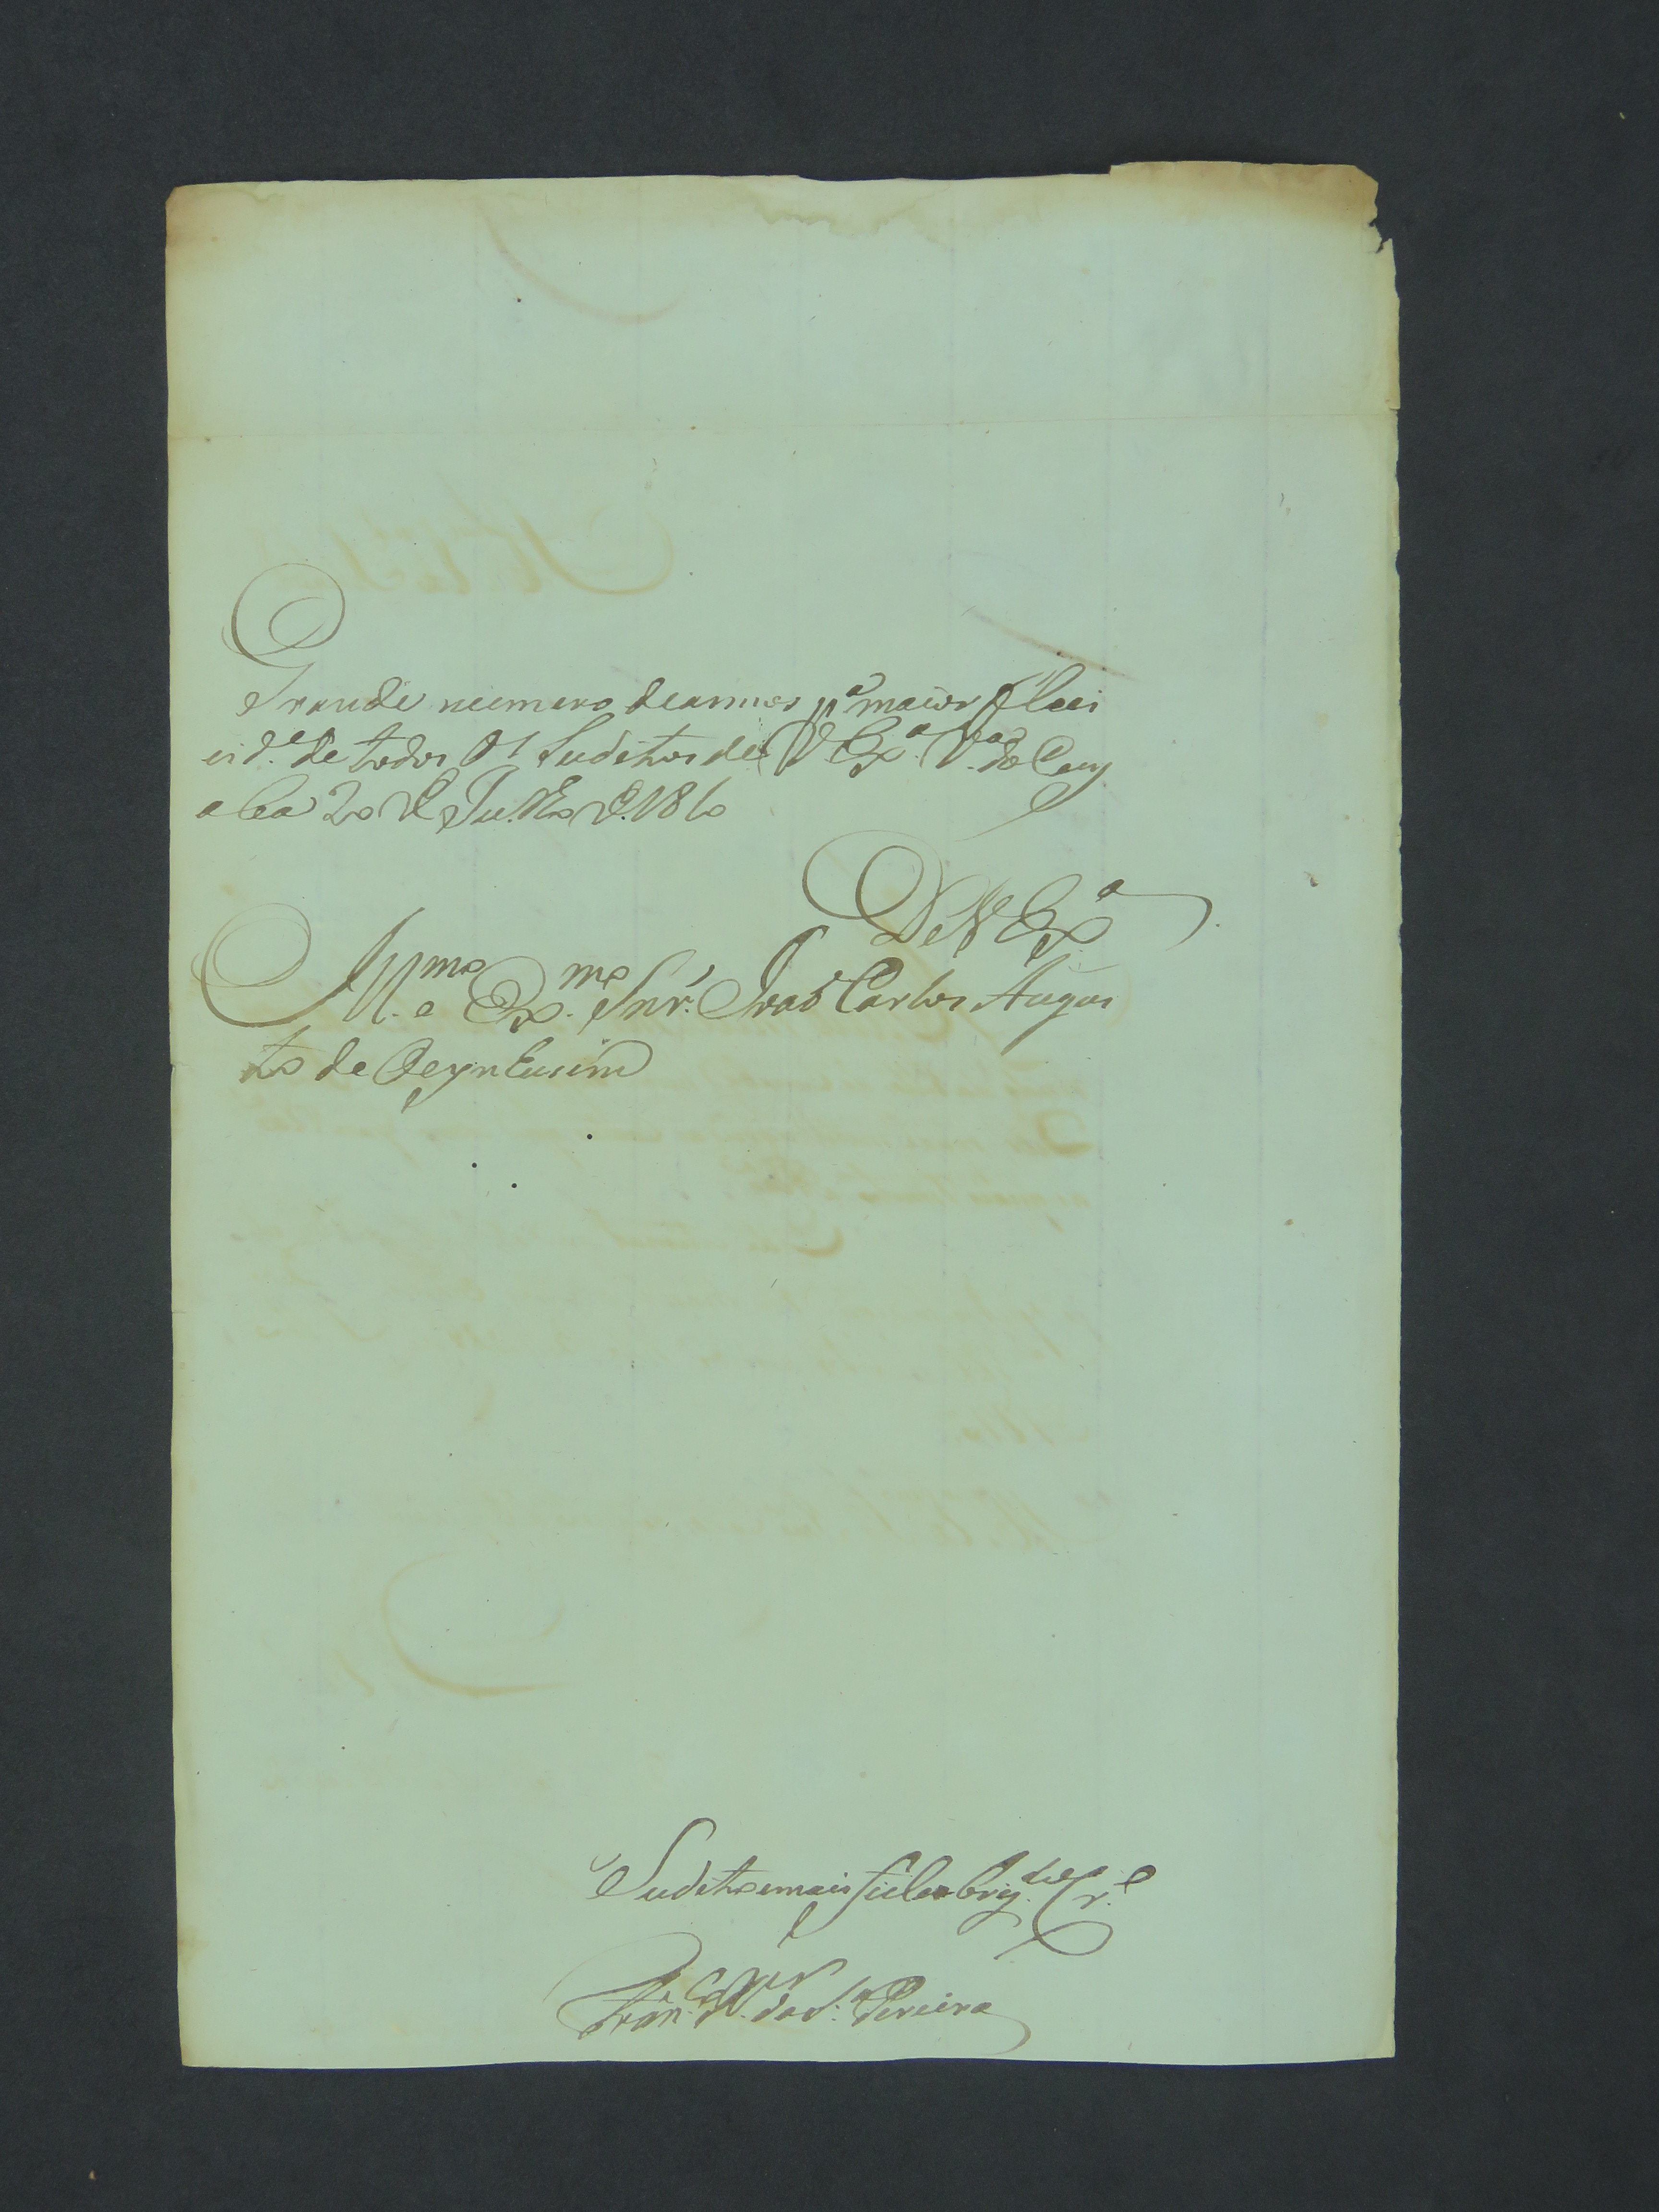 Grande numero deannos p.ª maior felici
cid.e de todos Os Suditos de V Ex.ª V.ª do Cuy
aba 20 de Julho de 1810
De V Ex.ª
Ill.mo e Ex.mo Snr. Joaõ Carlos Augus
to de Oeynhusem
Sudito emais fiel obrig.do Cr.e
Fran.co X.er da S.ª Pereira